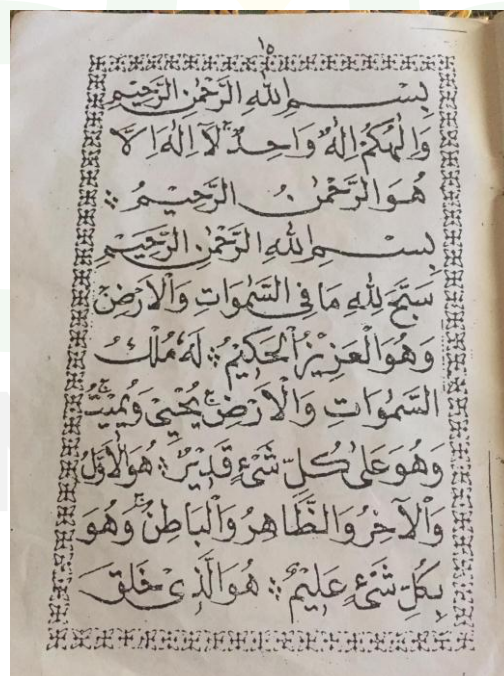 ١٥
بِسْمِ اللهِ الرَّحْمٰنِ الرَّحِيْمِ
وَاِلٰهُكُمْ اِلٰهٌ وَّاحِدٌ ۚ لَآ اِلٰهَ اِلَّا
هُوَ الرَّحْمٰنُ الرَّحِيْمُ ؞
بِسْمِ اللهِ الرَّحْمٰنِ الرَّحِيْمِ
سَبَّحَ لِلّٰهِ مَا فِى السَّمٰوَاتِ وَالْاَرْضِ ۚ
وَهُوَ الْعَزِيْزُ الْحَكِيْمُ ؞ لَهٗ مُلْكُ
السَّمٰوَاتِ وَالْاَرْضِ ۚ يُحْيٖ وَيُمِيْتُ ۚ
وَهُوَ عَلٰى كُلِّ شَىْءٍ قَدِيْرٌ ؞ هُوَ الْاَوَّلُ
وَالْاٰخِرُ وَالظَّاهِرُ وَالْبَاطِنُ ۚ وَهُوَ
بِكُلِّ شَىْءٍ عَلِيْمٌ ؞ هُوَ الَّذِىْ خَلَقَ